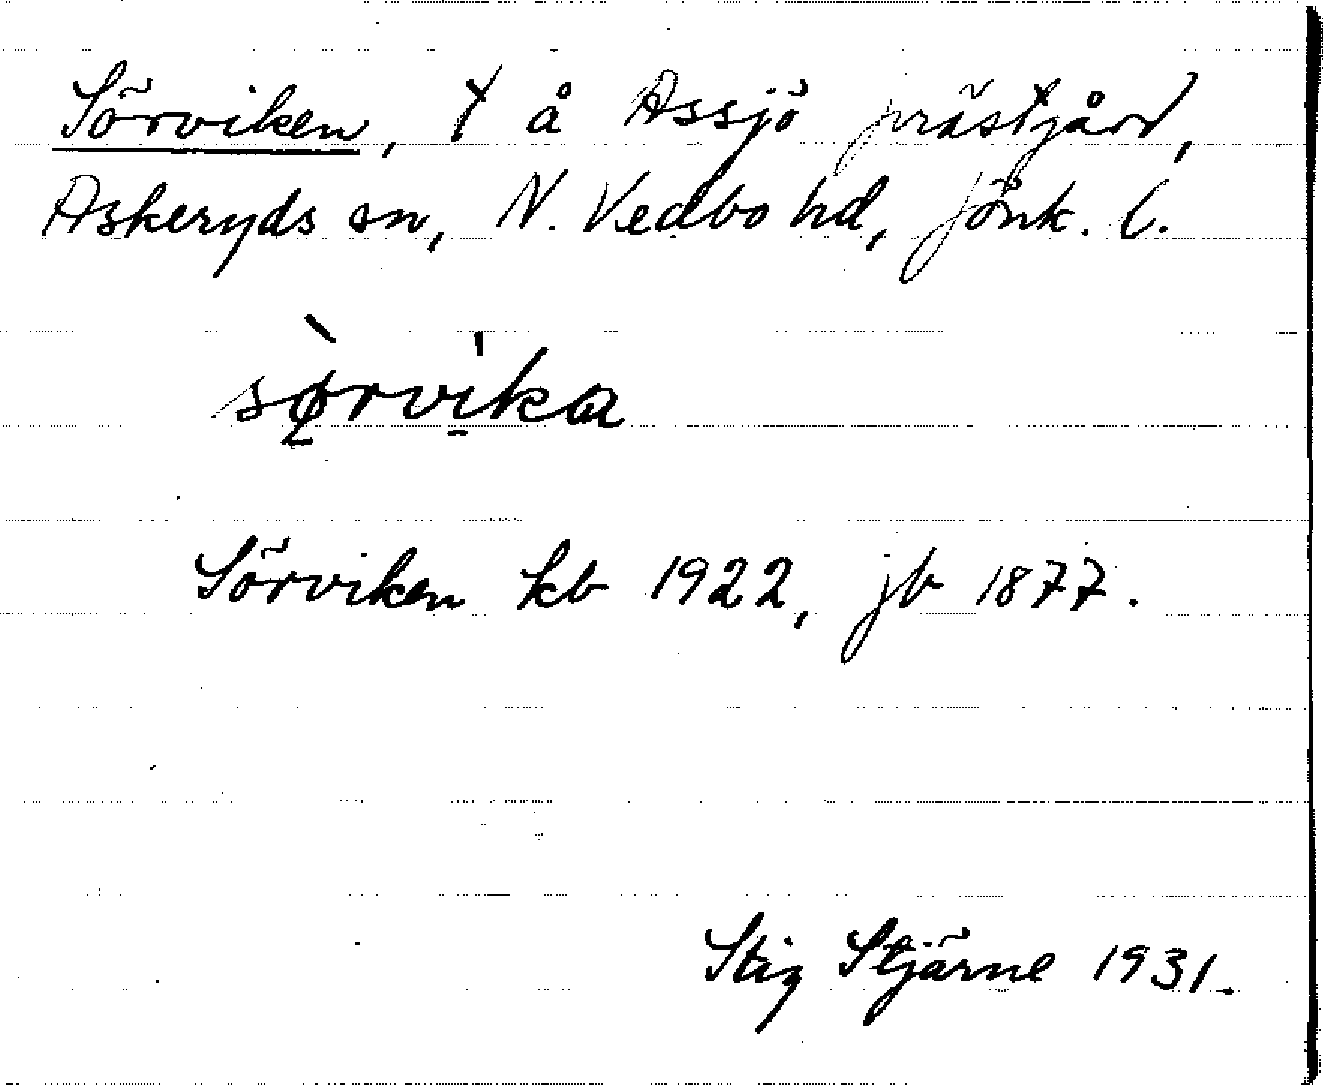 Sörviken, t å Assjö prästgård,
Askeryds sn, N. Vedbo hd, Jönk. l.
sø̀rvika
Sörviken kb 1922, jb 1877.
Stig Stjärne 1931.